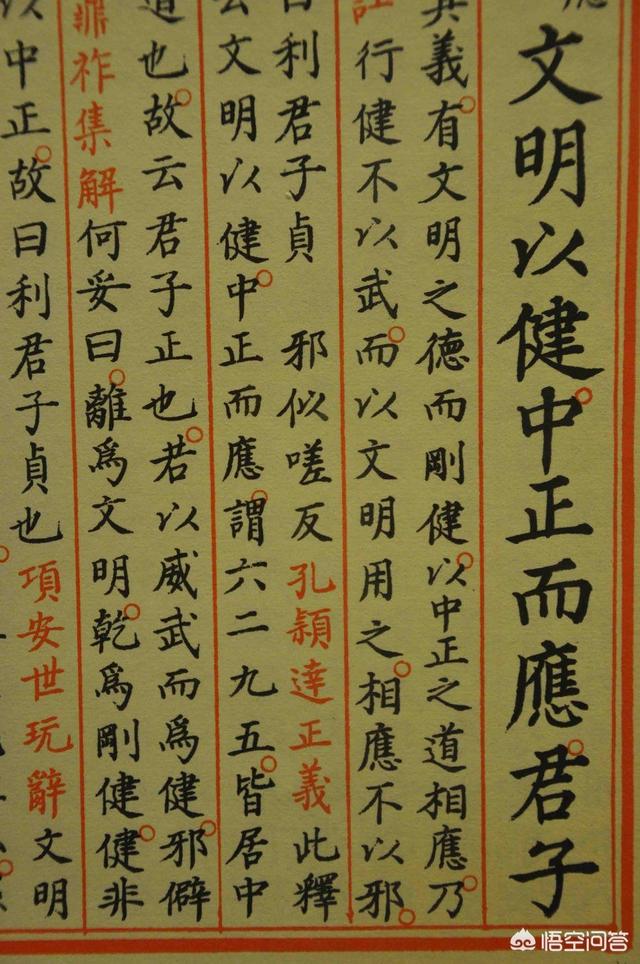 文明以健。中正而應。君子
其義。有文明之德而剛健。以中正之道相應。乃
註行健不以武。而以文明用之。相應不以邪。
曰利君子貞 邪似嗟反 孔穎達正義此釋
云文明以健。中正而應。謂六二九五。皆居中
道也。故云君子正也。若以威武而爲健。邪僻
鼎祚集解何妥曰。離爲文明。乾爲剛健。健非
以中正。故曰利君子貞也項安世玩辭文明
悟空问答